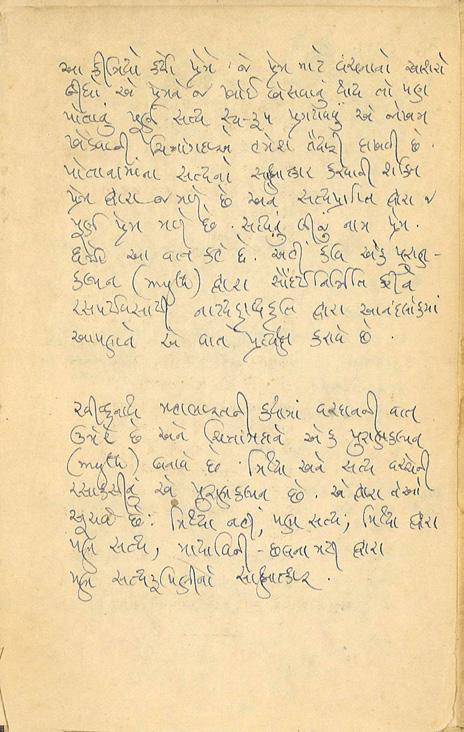 આ ક્રીડામાં કર્યો પ્રેમે જે પ્રેમ માટે વંચનાનો આશરો
લીધો એ પ્રેમને જ ખોઈ બેસવાનું થાય તો પણ
પોતાનું પૂર્ણ સત્ય સ્વ-રૂપ પ્રગટાવવું એ જોખમ
ખેડવાની ચિત્રાંગદાએ હંમેશ તૈયારી રાખવી છે.
પોતાનામાંના સત્યનો સાક્ષાત્કાર કરવાની શક્તિ
પ્રેમ દ્વારા જ મળે છે અને સત્યપ્રાપ્તિ દ્વારા જ
પૂર્ણ પ્રેમ મળે છે. સત્યનું બીજું નામ પ્રેમ.
આ વાત કહે છે. અહીં કવિ એક પુરાણ-
કલ્પન (myth) દ્વારા સૌંદર્યનિર્મિતિ કરીને
રસપર્યવસાયી નાટ્યકૃતિ દ્વારા આનંદલોકમાં
આપણને એ વાત પ્રત્યક્ષ કરાવે છે.
રવીન્દ્રનાથ મહાભારતની કથામાં વરદાનની વાત
ઉમેરે છે અને ચિત્રાંગદાને એક પુરાણકલ્પન
(myth) બનાવે છે. મિથ્યા અને સત્ય વચ્ચેની
રસાકસીનું એ પુરાણકલ્પન છે. એ દ્વારા તેઓ
સૂચવે છે: મિથ્યા નહીં, પણ સત્ય; મિથ્યા દ્વારા
પણ સત્ય, માયાવિની-છલનામયી દ્વારા
પણ સત્યરૂપિણીનો સાક્ષાત્કાર.